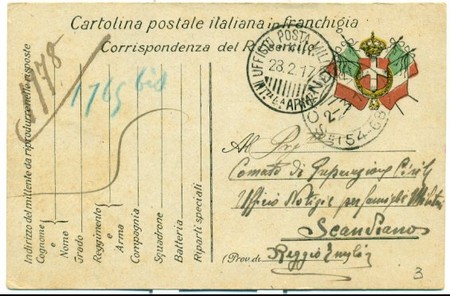 Cartolina postale italiana in franchigia
Corrispondenza del R. Esercito
UFFICIO POSTA MILI
28.2.17
ARMATA
(54-66)
178
1765 bis
Indirizzo del mittente da riprodurre nelle risposte
Cognome e Nome
Grado
Reggimento e Arma
Compagnia
Squadrone
Batteria
Riparti speciali
Al
Comitato di Preparazione Civile
Ufficio Notizie per famiglie Militari
Scandiano
(Prov. di Reggio Emilia
3